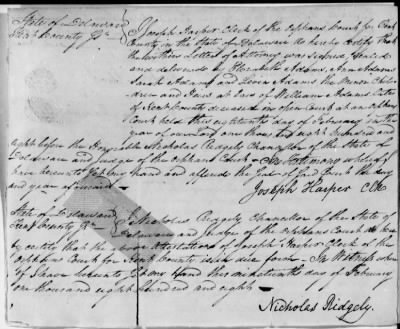 State of Delaware
Kent County Ss.
I Joseph Harper Clerk of the Orphans Court for Kent
County in the State of Delaware do hereby certify that
the within Letter of Attorney was signed sealed
and delivered by Elizabeth Adams, Ann Adams
Sarah Adams and Adams the minor Chil-
dren and Heirs at Law of William Adams late
of Kent County deceased in open Court at an Orphans
Court held this eighteenth day of February in the
year of our Lord one thousand eight hundred and
eight before the Honorable Nicholas Ridgely Chancellor of the State of
Delaware and judge of the Orphans Court – In testimony whereof I
have hereunto set my hand and affixed the Seal of said Court the day
and year aforesaid
Joseph Harper Clk
State of Delaware
Kent County Ss.
I Nicholas Ridgely Chancellor of the State of
Delaware and judge of the Orphans Court do here-
by certify that the above attestation of Joseph Harper Clerk of the
Orphans Court for Kent County is in due form – In Witness where-
of I have hereunto set my hand this nineteenth day of February
one thousand eight hundred and eight –
Nicholas Ridgely.